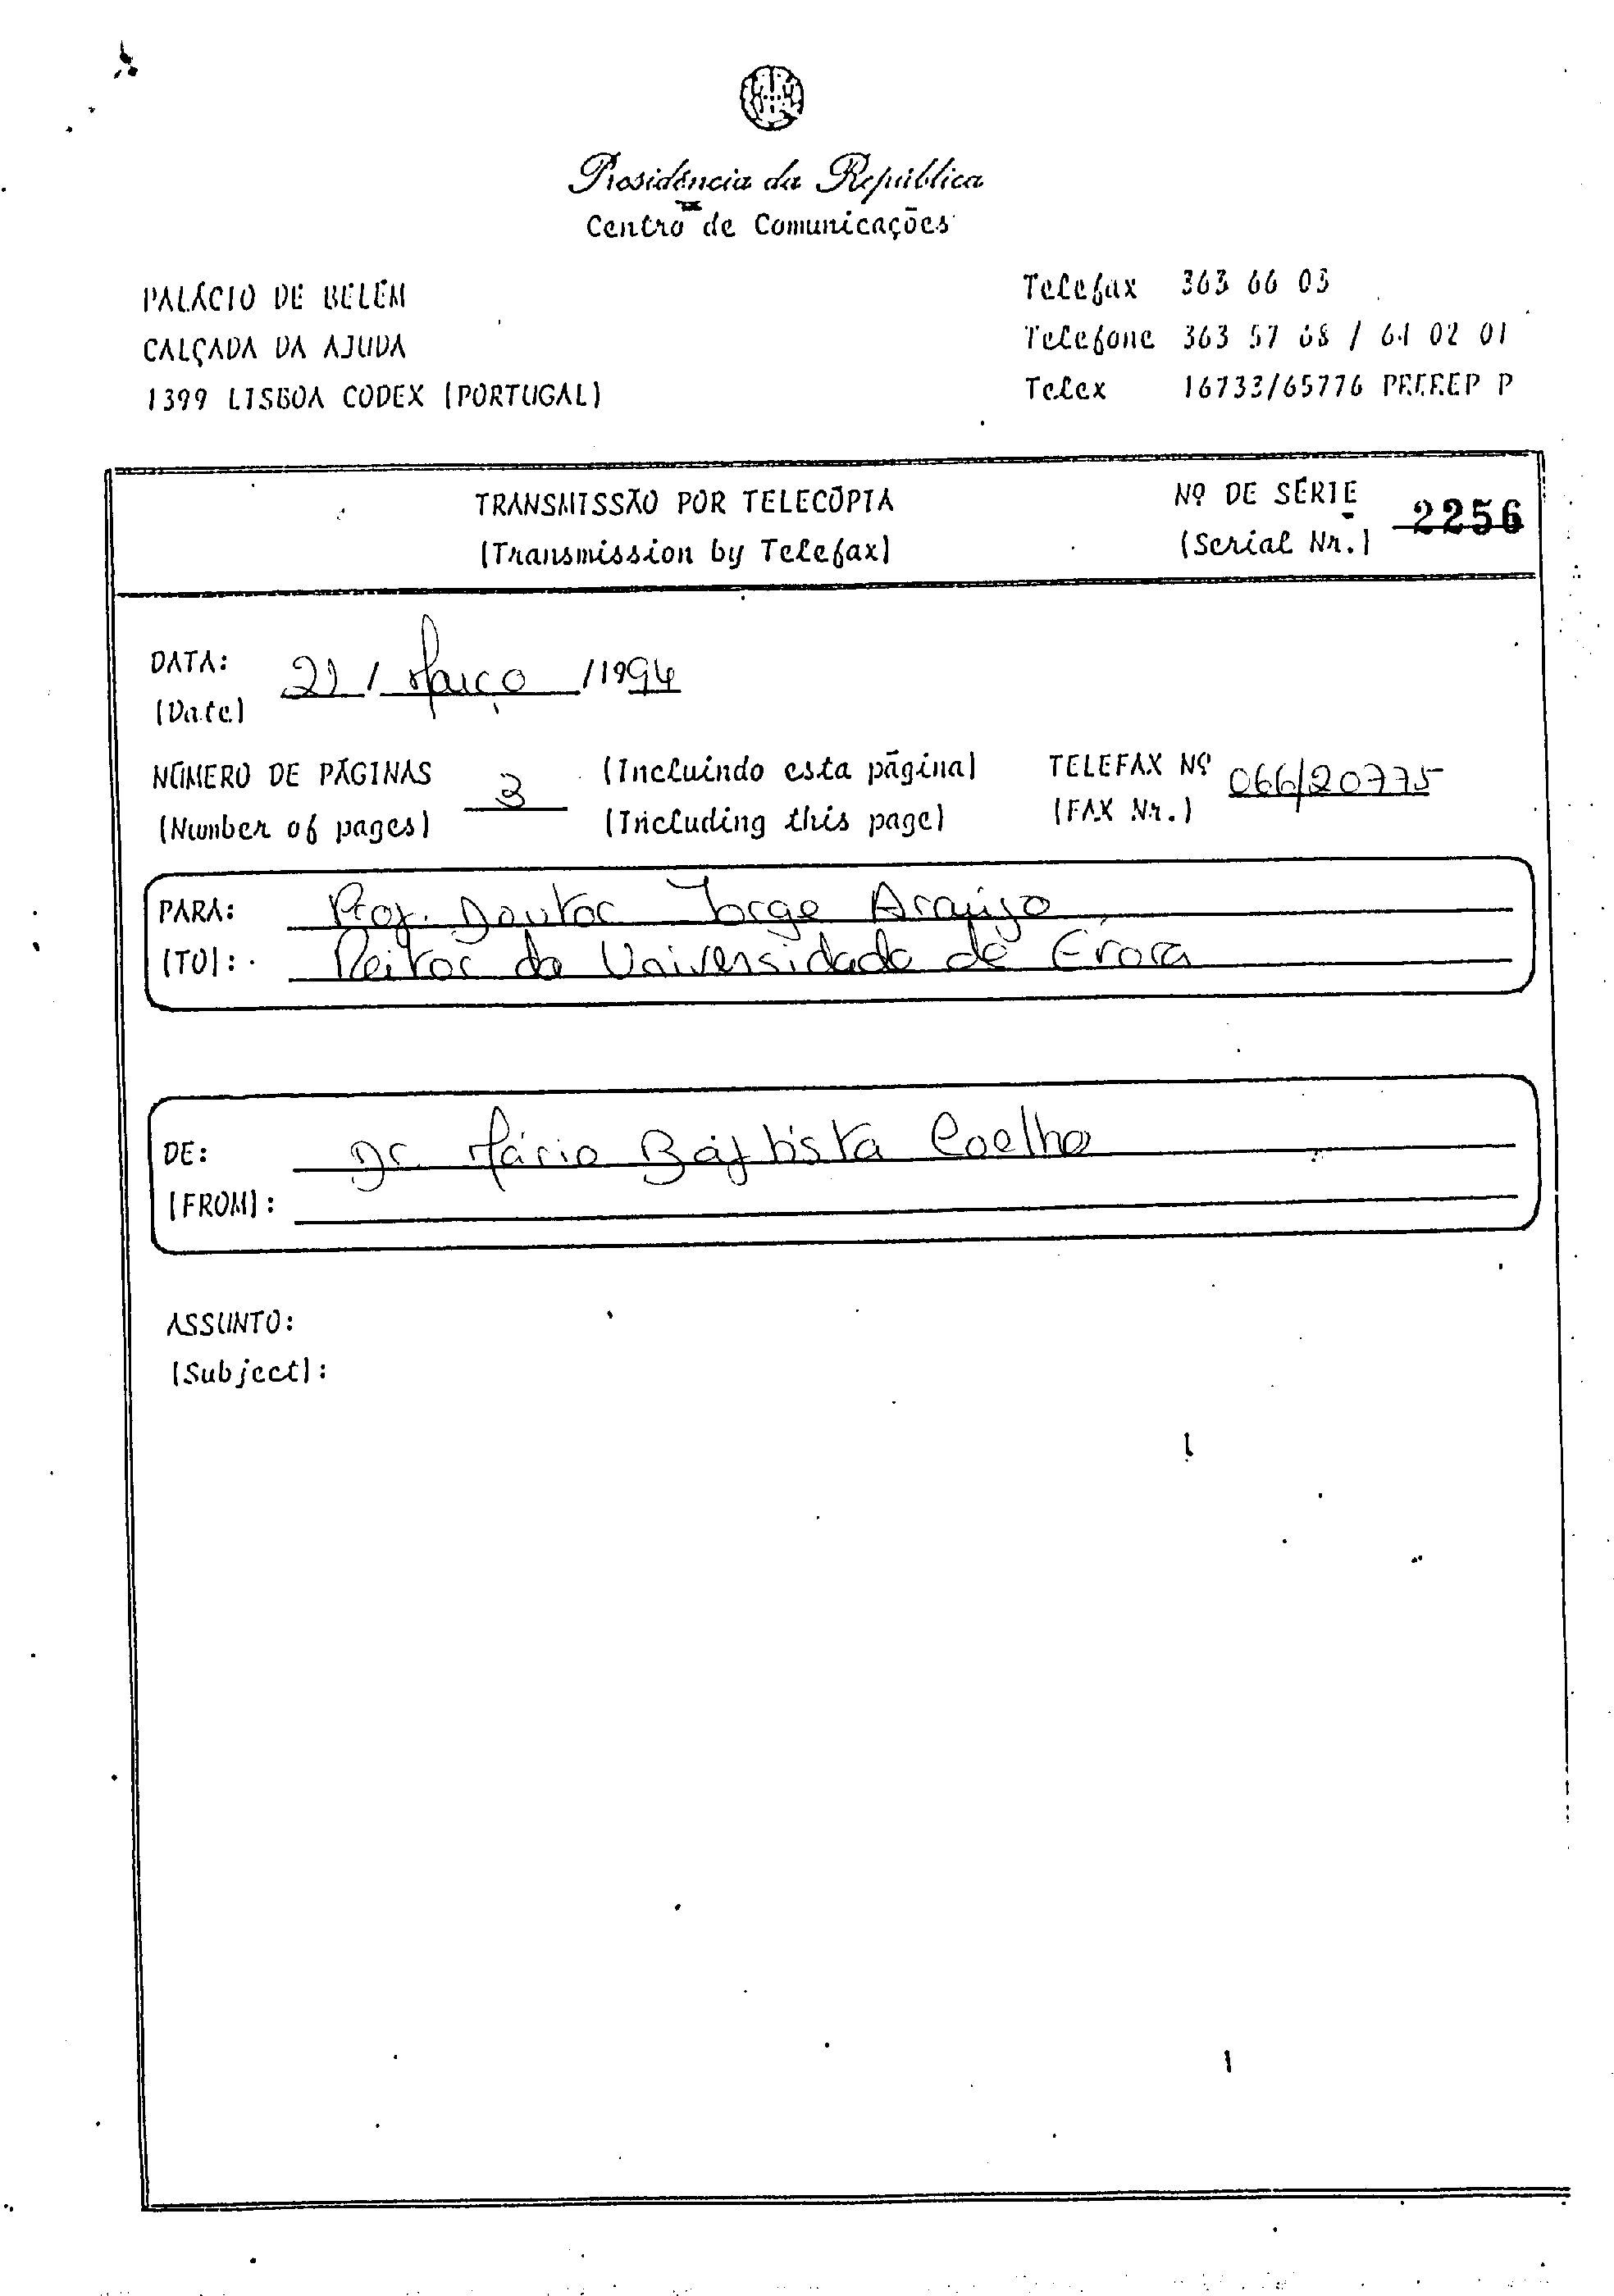 Presidência da República
Centro de Comunicações
PALÁCIO DE BELÉM
CALÇADA DA AJUDA
1399 LISBOA CODEX (PORTUGAL)
Telefax 363 66 03
Telefone 363 57 68 / 64 02 01
Telex 16733/65776 P
TRANSMISSÃO POR TELECÓPIA
(Transmission by Telefax)
Nº DE SÉRIE
(Serial Nr.) 2256
DATA: / Março / 1994
(Date)
NÚMERO DE PÁGINAS 3 (Incluindo esta página)
(Number of pages) (Including this page)
TELEFAX Nº 066/20775
(FAX Nr.)
PARA: Prof. Doutor Jorge Araújo
(TO): Reitor da Universidade de Évora
DE: Dr. Mário Baptista Coelho
(FROM):
ASSUNTO:
(Subject):